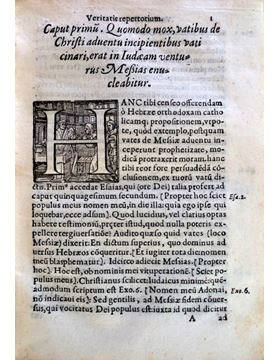 Veritatis repertorium. 1
Caput primũ. Quomodo mox, vatibus de
Christi aduentu incipientibus vati
cinari, erat in Iudæam ventu-
rus Messias enu-
cleabitur.
HANC tibi censeo offerendam
ô Hebræe orthodoxam catho
licamq́; propositionem, vt po-
te, quòd exemplo, postquam
vates de Messiæ aduentu in-
ceperunt prophetizare, mo-
dicã protraxerit moram, hanc
tibi reor fore persuadédã có-
clusionem, ex tuorũ vatũ di-
ctis. Primº accedat Esaias, qui (ore Dei) talia profert ad
caput quinquagesimum secundum. [Propter hoc sciet Esa.52.
populus meus nomen meũ, in die illa: quia ego ipse qui
loquebar, ecce adsum]. Quod lucidius, vel clarius optas
habere testimoniũ, pręter istud, quòd nulla poteris expel-
lere tergiuersatióe? Audito quàm quid vates (loco
Messiæ) dixerit. En dictum superius, quo dominus ad
versus Hebræos cõquęritur. [Et iugiter tota die nomen
meũ blasphematur]. Identidem (dicit Messias) [Propter
hoc]. Hoc est, ob nominis mei vituperationẽ. [Sciet po-
pulus meus]. Christianus scilicet iudaicus minimè: quẽ-
admodum scriptum est Exo. 6. [Nomen meũ Adonai, Exo.6.
nó indicaui eis]. Sed gentilis, ad Messiam fidem cóuer-
sus, qui vocitatus Dei populus est iuxta id quod dicitur
A ad